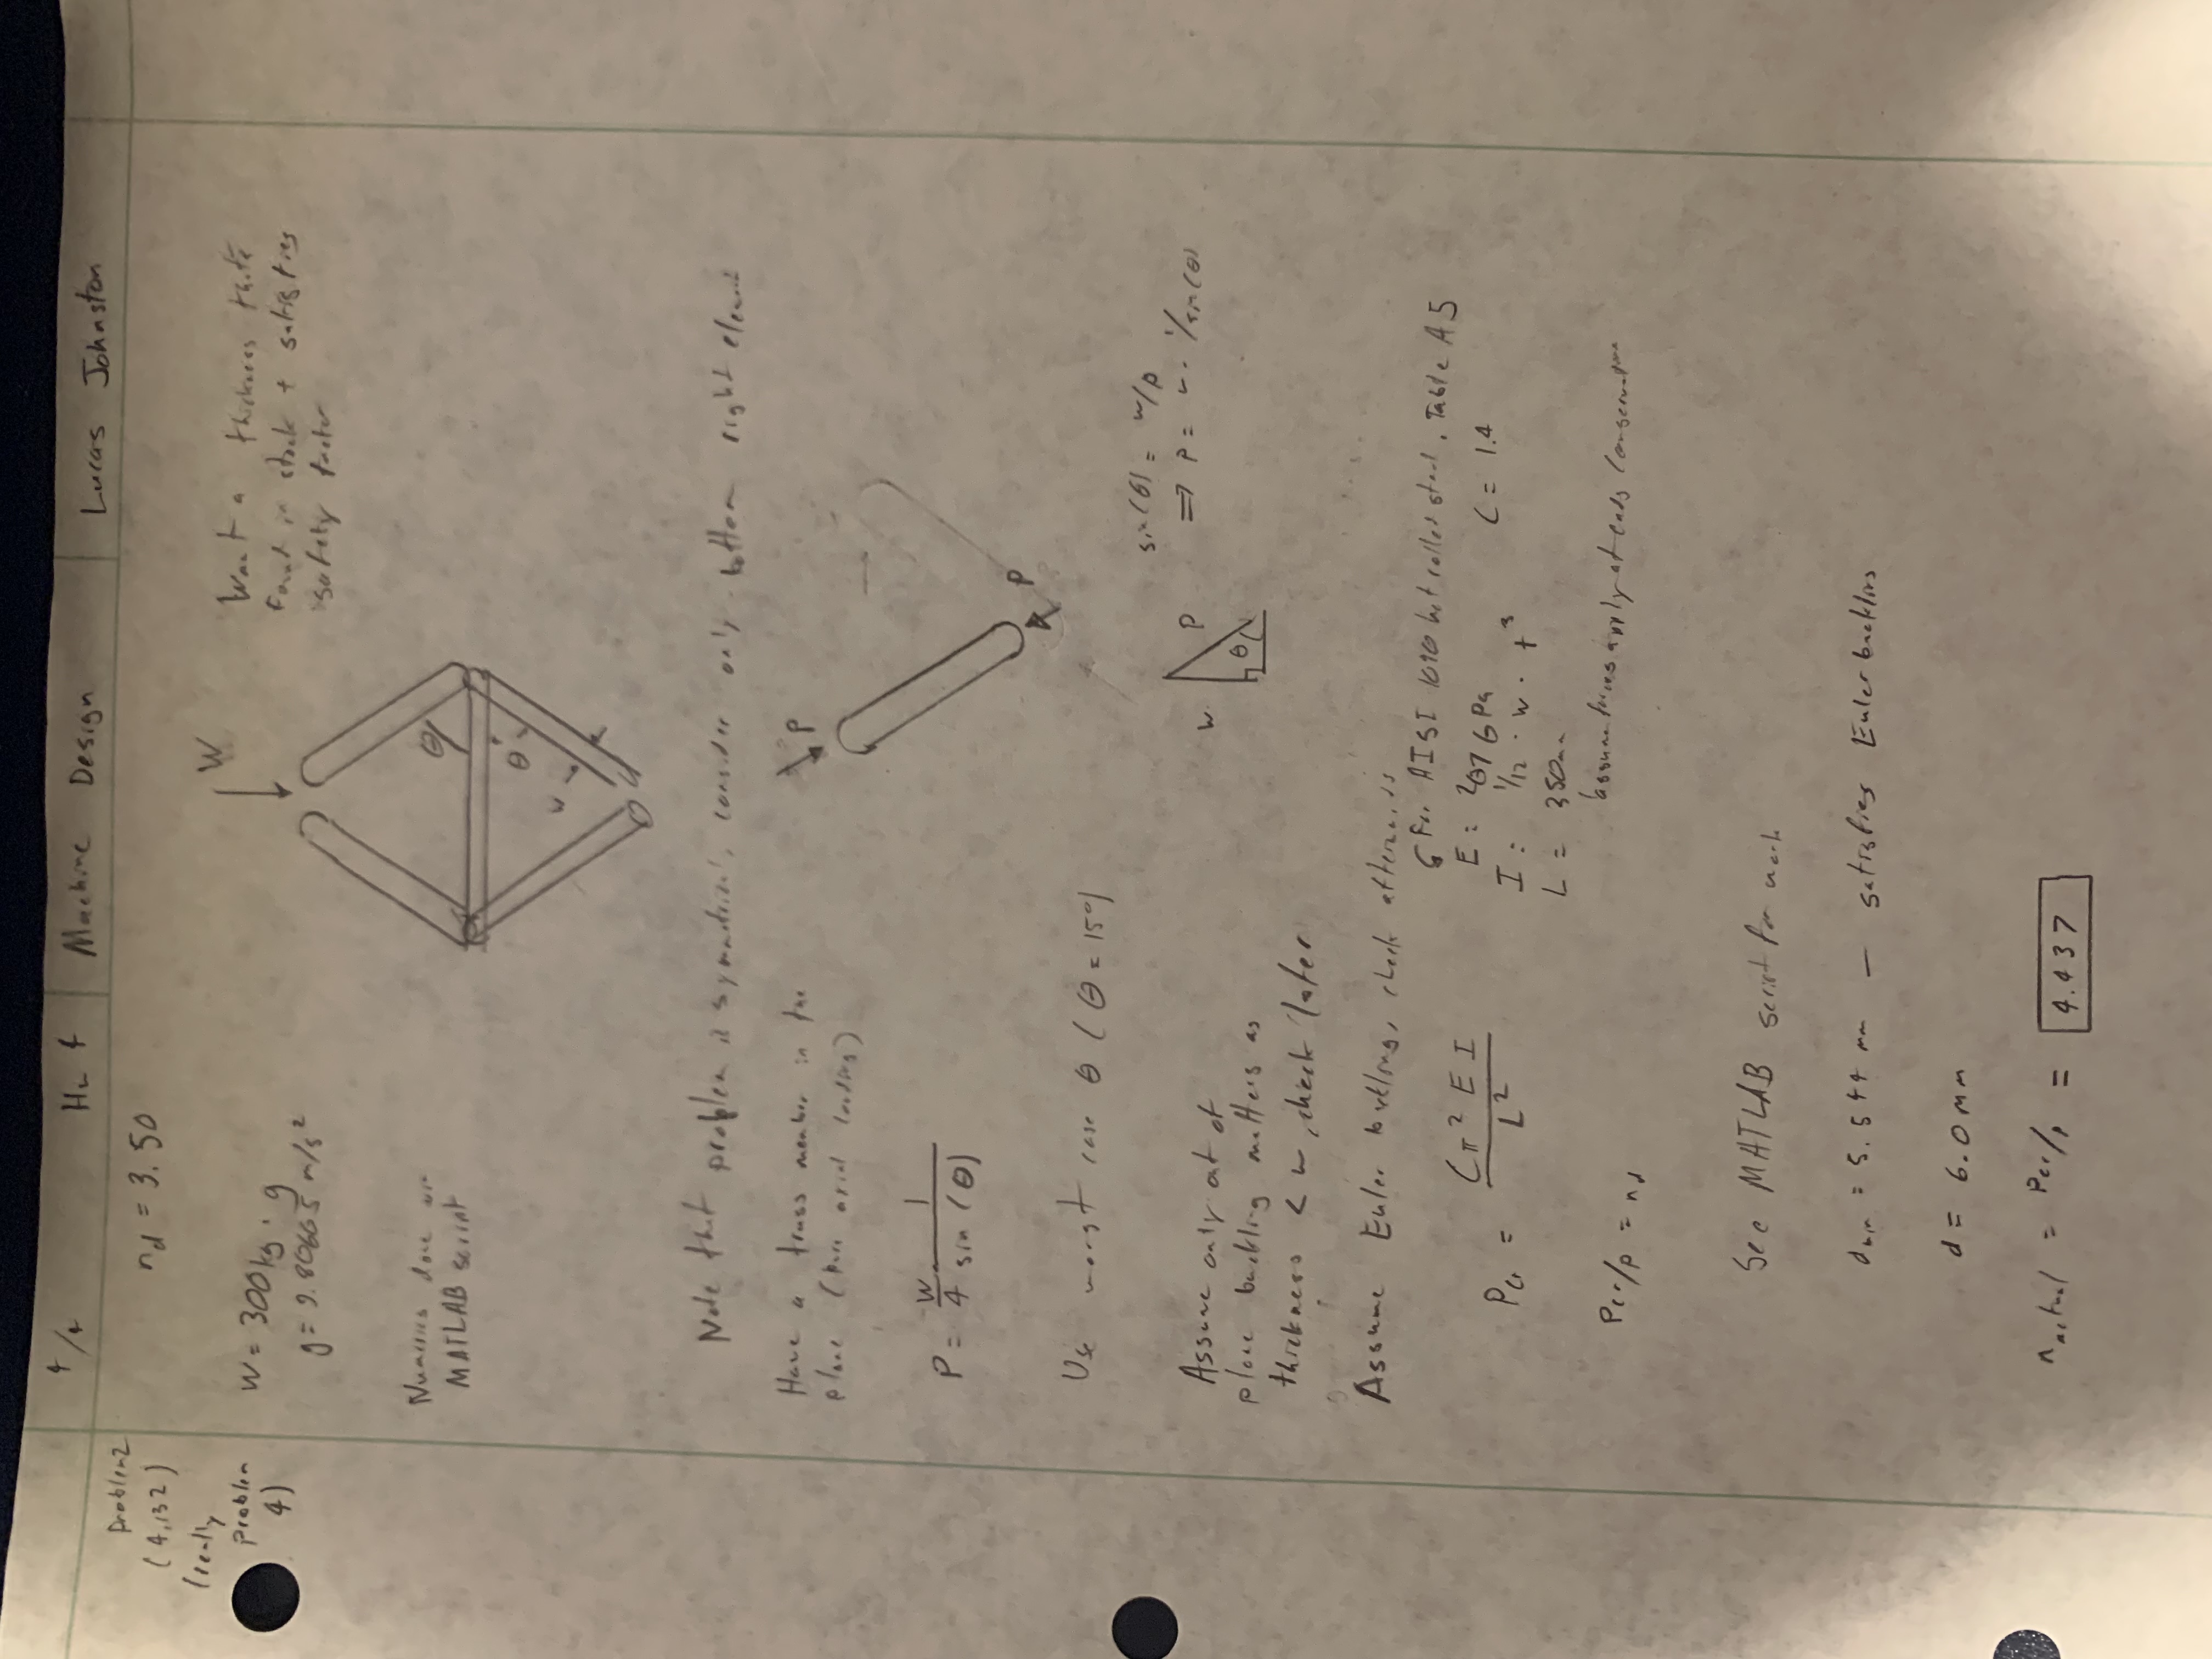 4/4 Hw 4 Machine Design Lucas Johnston
Problem 2
(4,132)
(really
problem
4)
n_d = 3.50
W
W = 300kg · g
g = 9.80665 m/s²
Want a thickness thats
found in stock + satisfies
safety factor
Numerics done via
MATLAB script
θ
θ
w
Note that problem is symmetrical, consider only bottom right element
Have a truss member in the
plane (pure axial loading)
P
P = W/4 · 1/sin(θ)
P
Use worst case θ (θ = 15°)
sin(θ) = w/p
⟹ P = w · 1/sin(θ)
w P θ
Assume only out of
plane buckling matters as
thickness < w, check later
Assume Euler buckling, check afterwards
For AISI 1010 hot rolled steel, Table A5
P_cr = Cπ² E I / L²
E = 207 GPa C = 1.4
I = 1/12 · w · t³
L = 350mm
assume forces apply at ends
P_cr/p = n_d
See MATLAB script for work
d_min = 5.544 mm — satisfies Euler buckling
d = 6.0 mm
n_actual = P_cr/p = 4.437